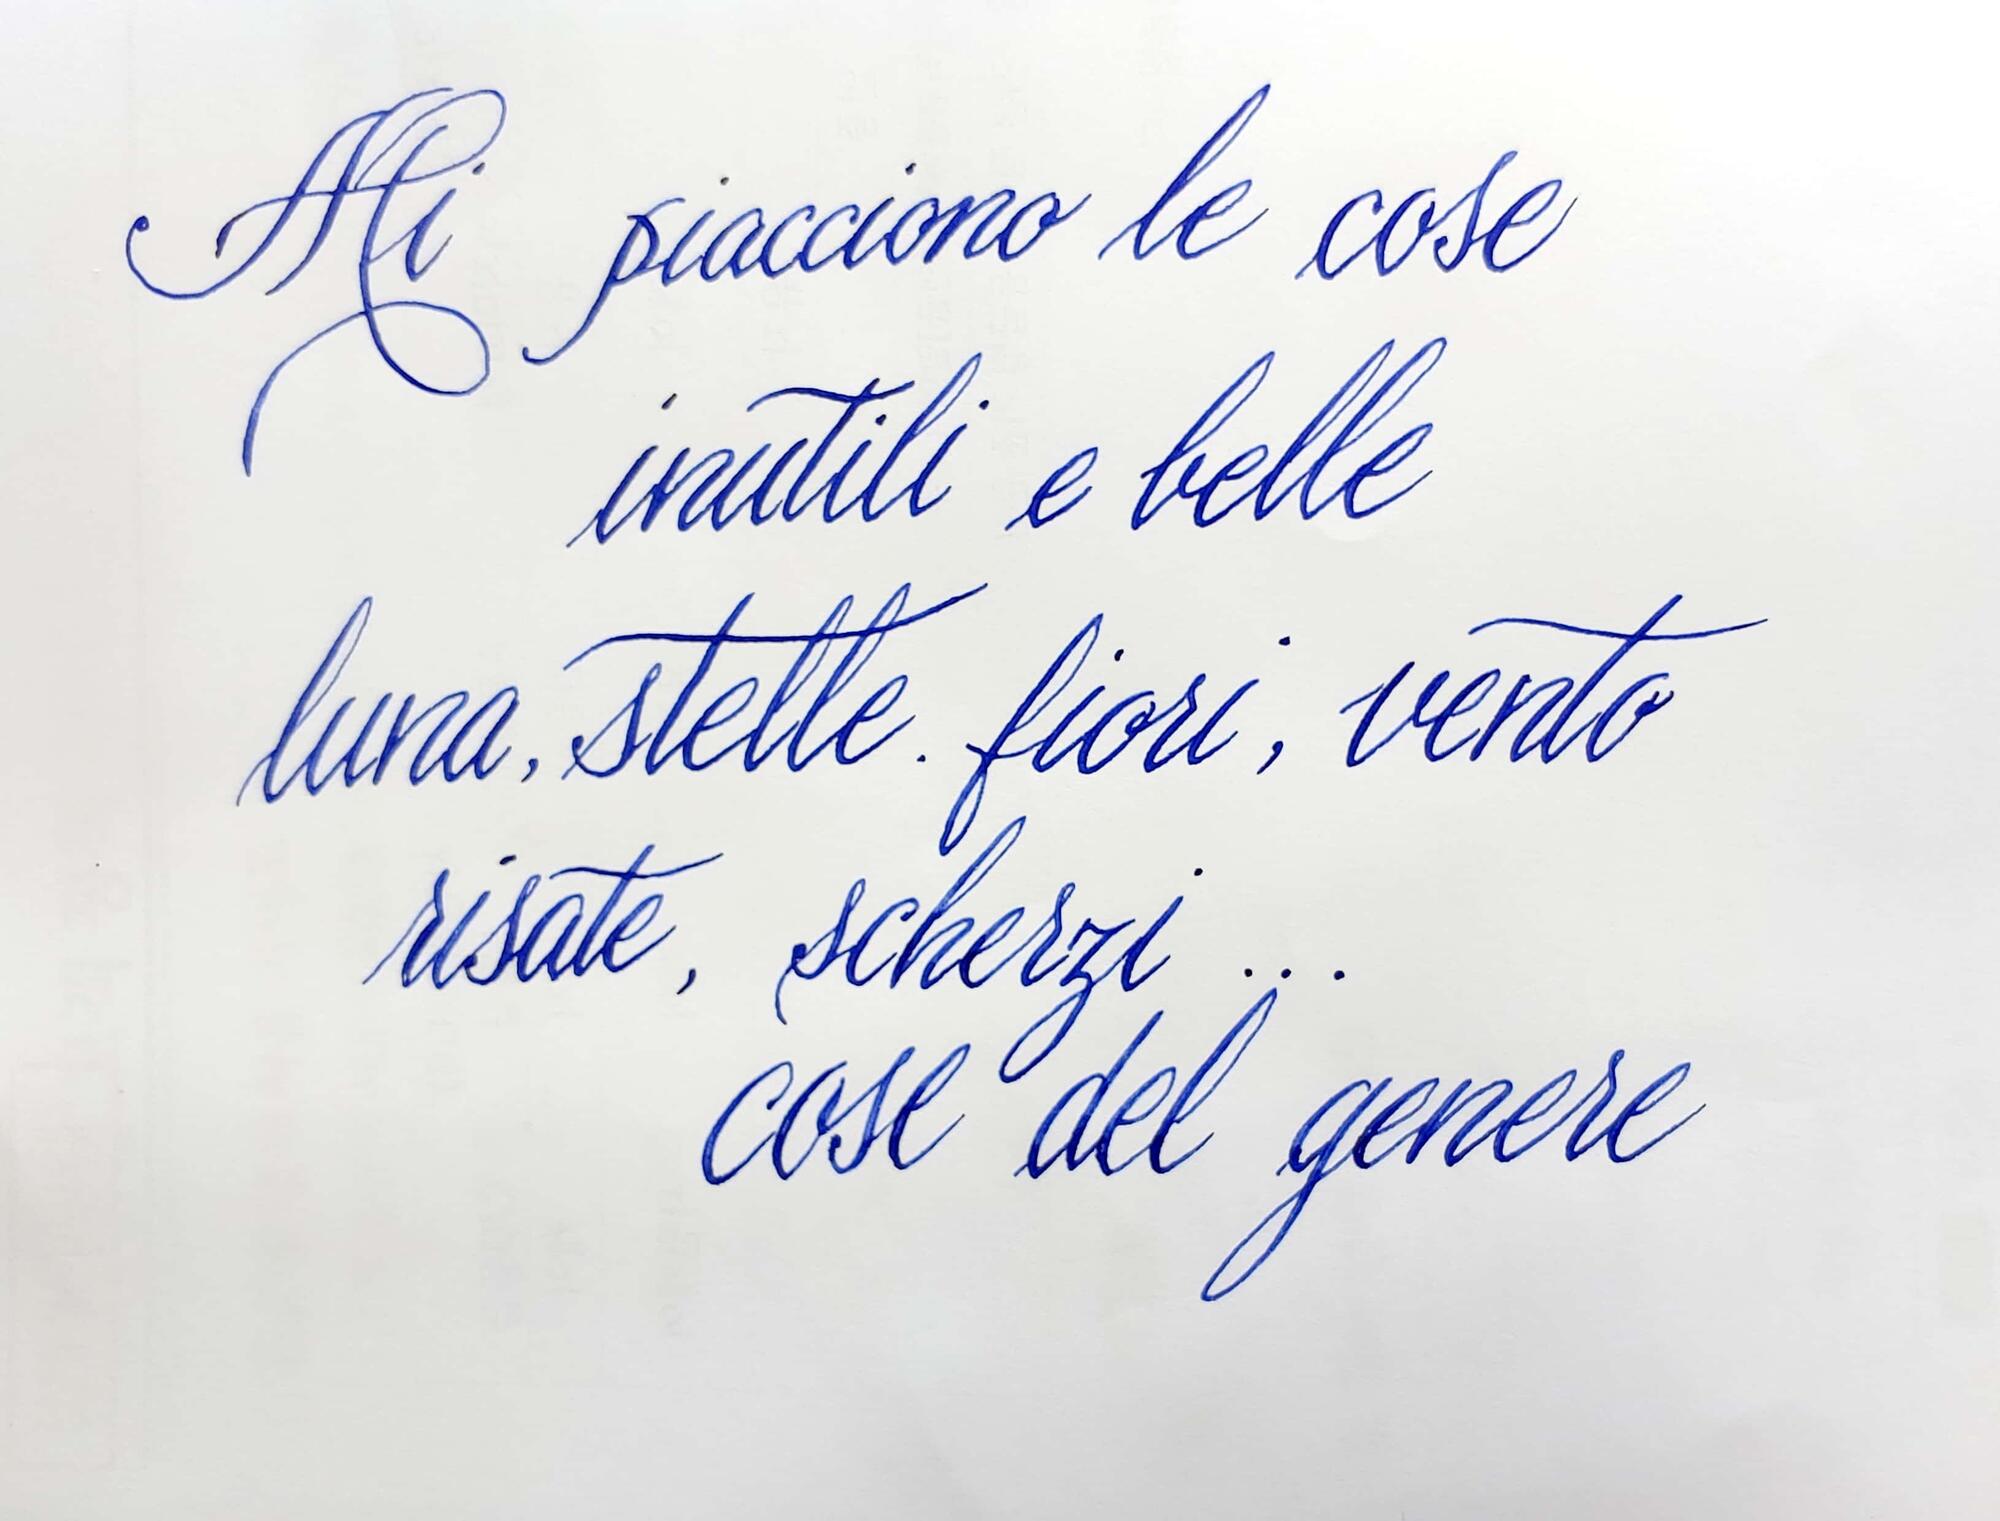 Mi piacciono le cose
inutili e belle
luna, stelle. fiori, vento
risate, scherzi ...
cose del genere